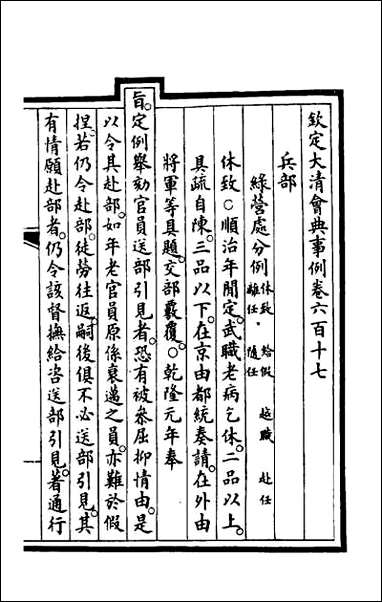 欽定大清會典事例卷六百十七
兵部
綠營處分例 休致 給假 越職 赴任
離任 隨任
休致○順治年閒定武職老病乞休二品以上
具疏自陳三品以下在京由都統奏請在外由
將軍等具題交部覈覆○乾隆元年奉
旨定例舉劾官員送部引見者恐有被參屈抑情由是
以令其赴部如年老官員原係衰邁之員亦難於假
捏若仍令赴部徒勞往返嗣後俱不必送部引見其
有情願赴部者仍令該督撫給咨送部引見著通行